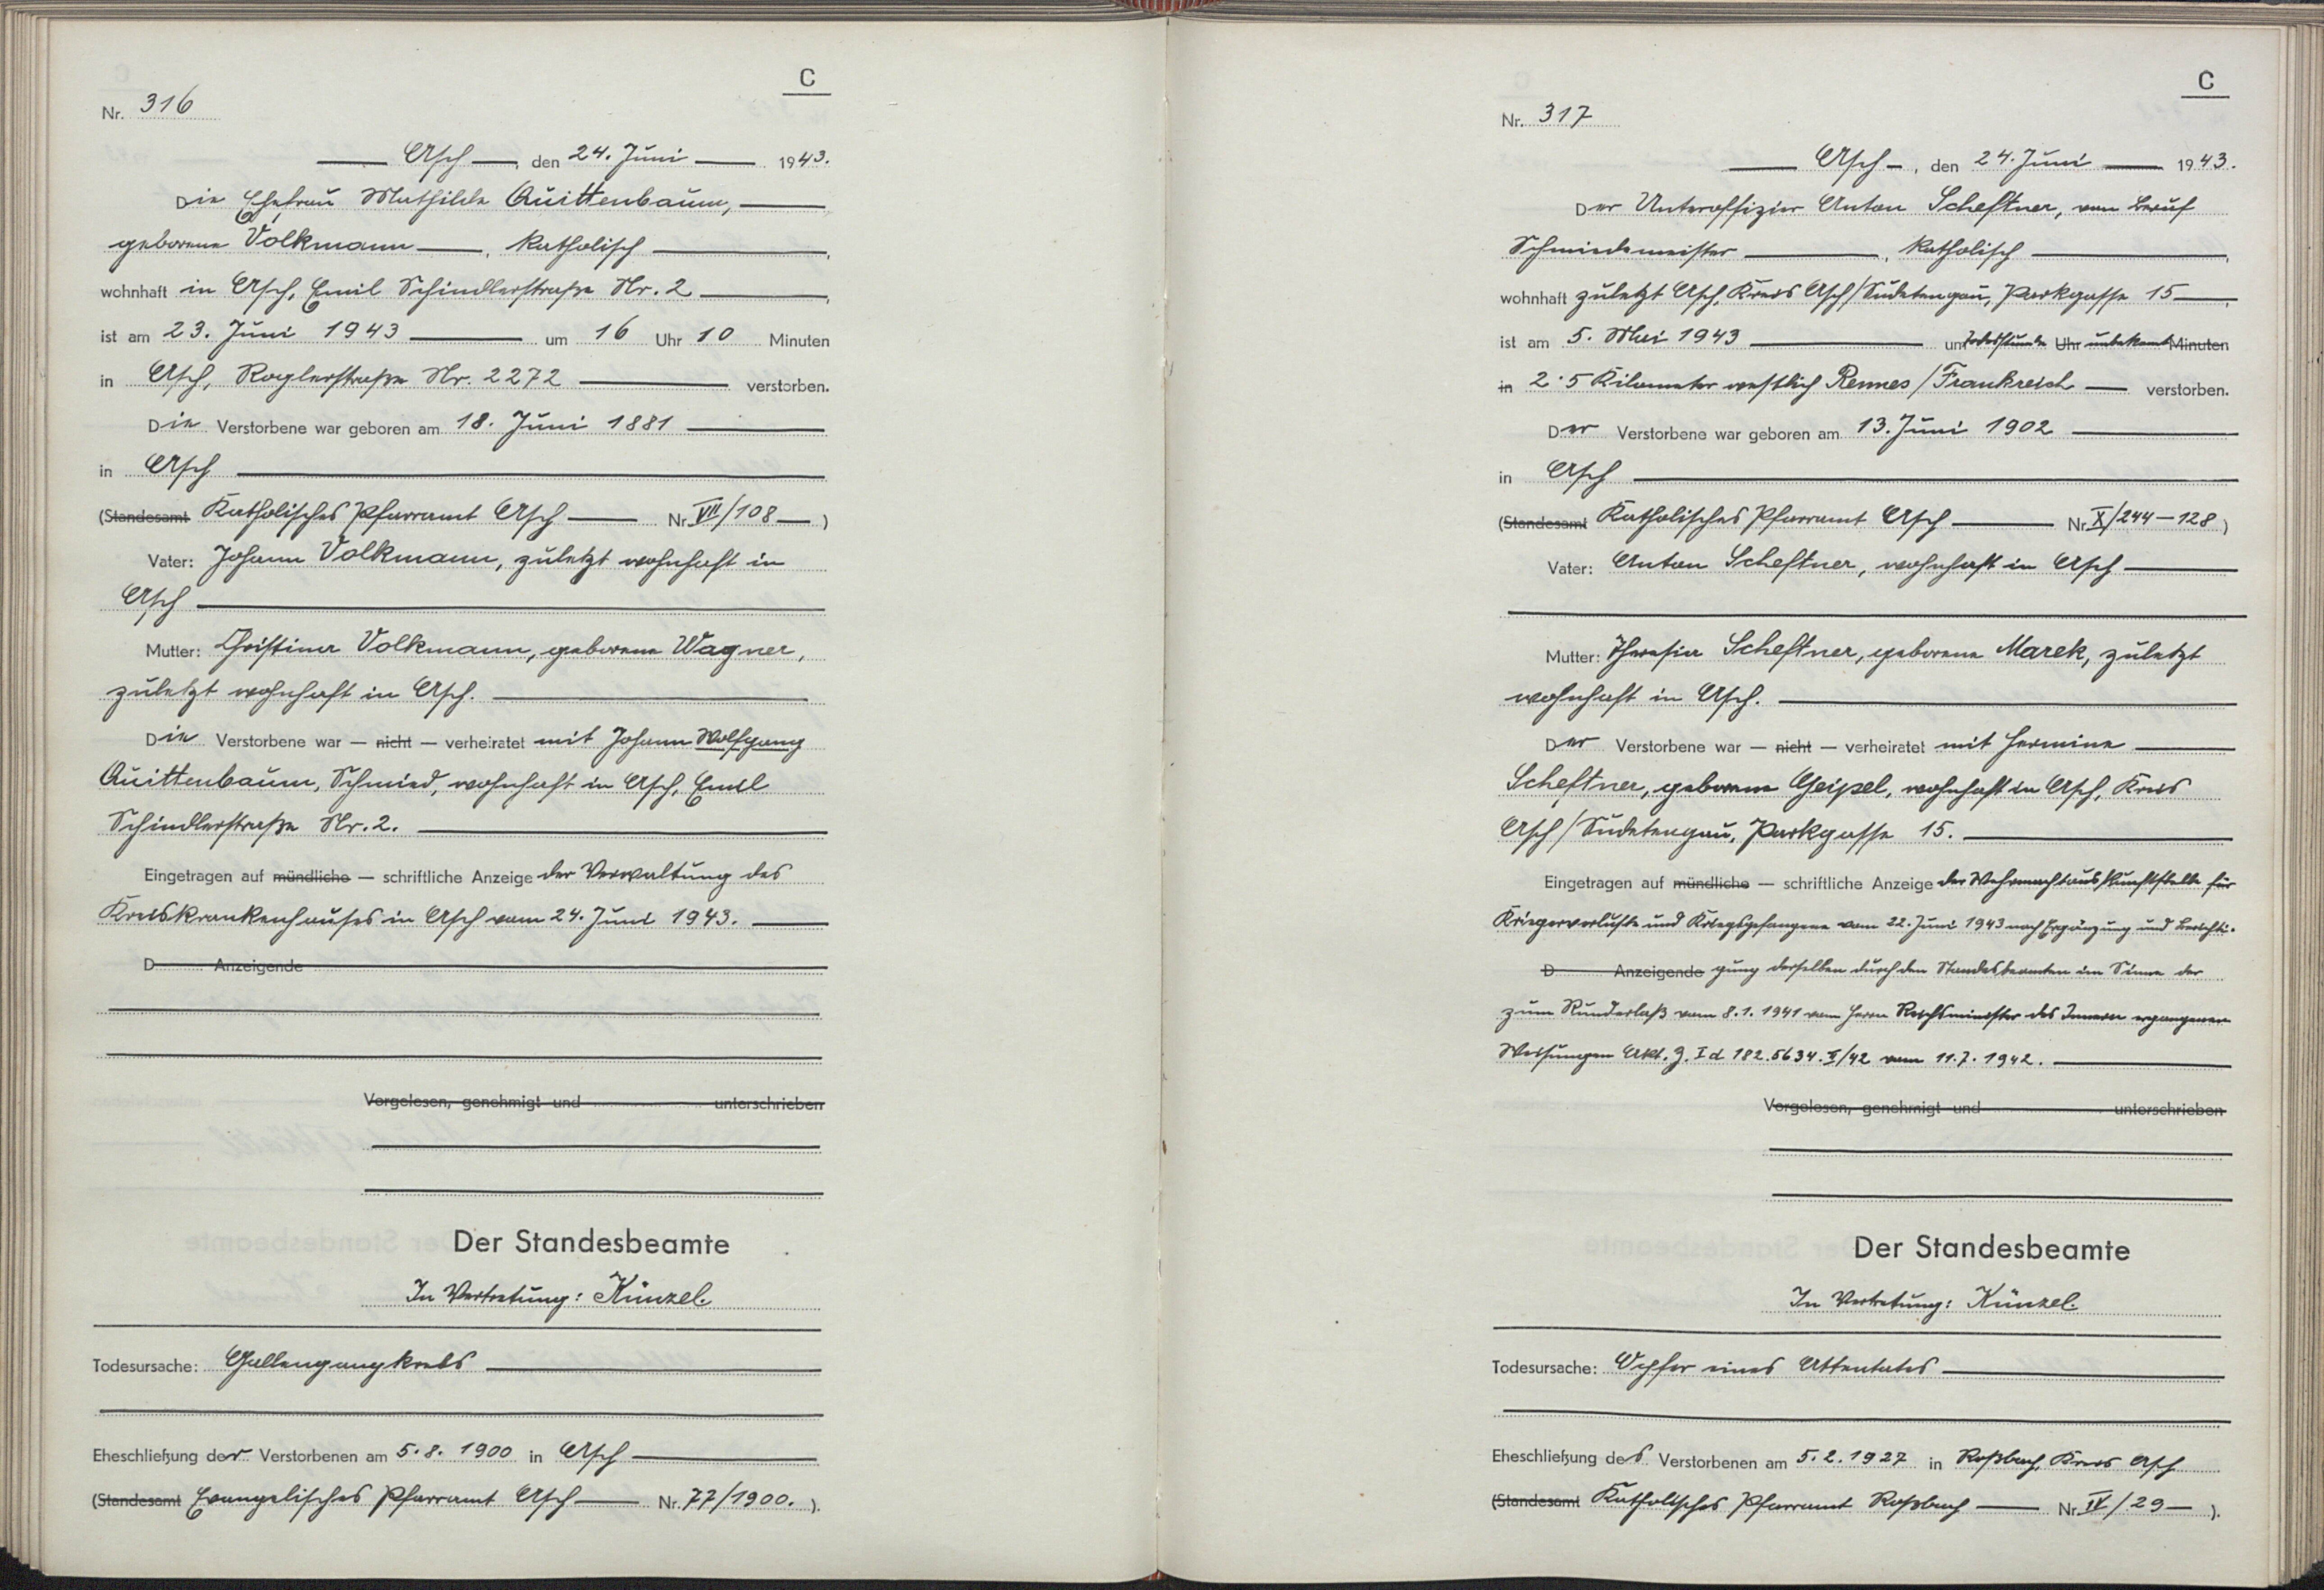 C
Nr. 316
Asch, den 24. Juni 1943.
Die Ehefrau Mathilde Quittenbaum,
geborene Volkmann, katholisch,
wohnhaft in Asch, Emil Schindlerstraße Nr. 2,
ist am 23. Juni 1943 um 16 Uhr 10 Minuten
in Asch, Roglerstraße Nr. 2272 verstorben.
Die Verstorbene war geboren am 18. Juni 1881
in Asch
(Standesamt Katholisches Pfarramt Asch Nr. VII/108)
Vater: Johann Volkmann, zuletzt wohnhaft in
Asch
Mutter: Christina Volkmann, geborene Wagner,
zuletzt wohnhaft in Asch.
Die Verstorbene war — nicht — verheiratet mit Johann Wolfgang
Quittenbaum, Schmied, wohnhaft in Asch, Emil
Schindlerstraße Nr. 2.
Eingetragen auf mündliche — schriftliche Anzeige der Verwaltung des
Kreiskrankenhauses in Asch vom 24. Juni 1943.
D Anzeigende
Vorgelesen, genehmigt und unterschrieben
Der Standesbeamte
In Vertretung: Künzel.
Todesursache: Gallengangkrebs
Eheschließung der Verstorbenen am 5.8.1900 in Asch
(Standesamt Evangelisches Pfarramt Asch Nr. 77/1900.).
C
Nr. 317
Asch, den 24. Juni 1943.
Der Unteroffizier Anton Scheftner, von Beruf
Schmiedemeister, katholisch,
wohnhaft zuletzt Asch, Kreis Asch/Sudetengau, Parkgasse 15,
ist am 5. Mai 1943 um Todesstunde Uhr unbekannt Minuten
in 2·5 Kilometer westlich Rennes/Frankreich verstorben.
Der Verstorbene war geboren am 13. Juni 1902
in Asch
(Standesamt Katholisches Pfarramt Asch Nr. X/244-128)
Vater: Anton Scheftner, wohnhaft in Asch
Mutter: Theresia Scheftner, geborene Marek, zuletzt
wohnhaft in Asch.
Der Verstorbene war — nicht — verheiratet mit Hermine
Scheftner, geborene Geipel, wohnhaft in Asch, Kreis
Asch/Sudetengau, Parkgasse 15.
Eingetragen auf mündliche — schriftliche Anzeige der Wehrmachtauskunftstelle für
Kriegerverluste und Kriegsgefangene vom 22. Juni 1943 nach Ergänzung und Berichti-
D Anzeigende gung derselben durch den Standesbeamten im Sinne der
zum Runderlaß vom 8.1.1941 vom Herrn Reichsminister des Innern ergangenen
Weisungen Akt. Z. I d 182.5634.II/42 vom 11.7.1942.
Vorgelesen, genehmigt und unterschrieben
Der Standesbeamte
In Vertretung: Künzel.
Todesursache: Opfer eines Attentates
Eheschließung des Verstorbenen am 5.2.1927 in Roßbach, Kreis Asch
(Standesamt Katholisches Pfarramt Roßbach Nr. IV/29).